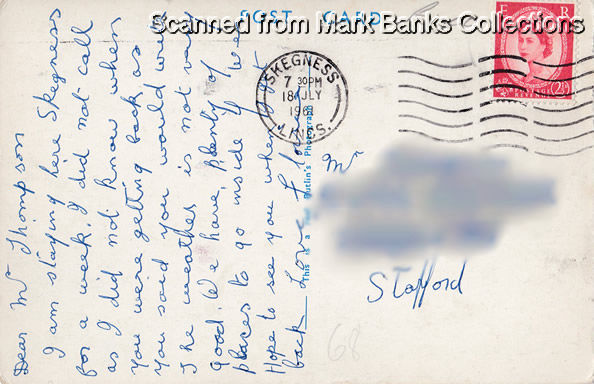 Scanned from Mark Banks Collections
POST CARD
Dear Mr Thompson
I am staying here Skegness
for a week. I did not call
as I did not know when
you were getting back as
you said you would write
The weather is not very
good. We have plenty of
places to go inside if wet
Hope to see you when I get
back Love
This is a Butlin's Photograph
SKEGNESS
7 30PM
18 JLY
196
LINCS.
E R
2½
Mr
Stafford
68